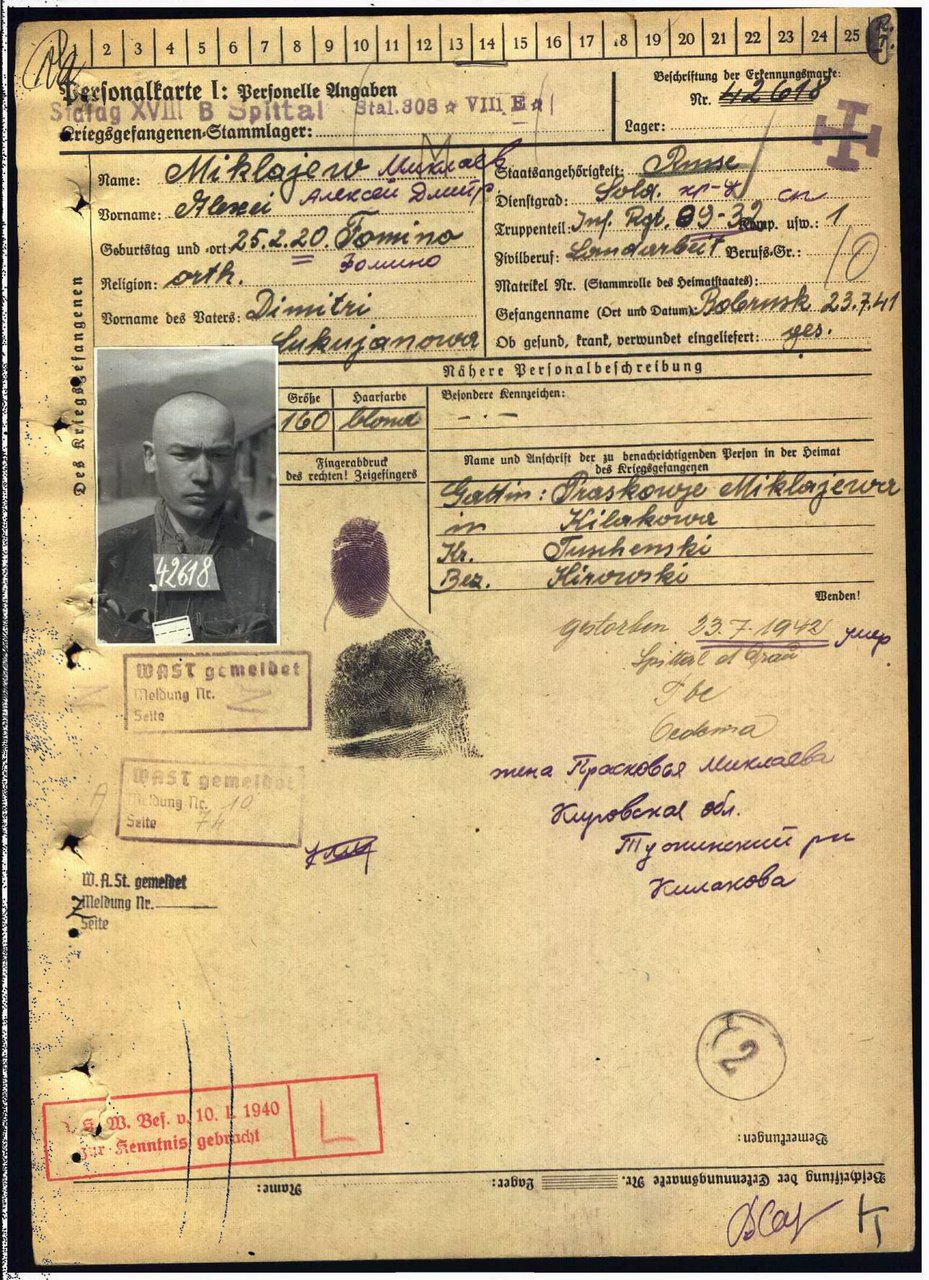 2 3 4 5 6 7 8 9 10 11 12 13 14 15 16 17 18 19 20 21 22 23 24 25
Personalkarte I: Personelle Angaben
Beschriftung der Erkennungsmarke:
Stalag XVIII B Spittal Stal. 308 ☆ VIII E ☆
Nr. 42618
Kriegsgefangenen-Stammlager:
Lager:
Des Kriegsgefangenen
Name: Miklajew Миклаев
Vorname: Alexei Алексей Дмитр
Geburtstag und -ort: 25.2.20 Fomino
Фомино
Religion: orth.
Vorname des Vaters: Dimitri
Lukujanowa
Staatsangehörigkeit: Russe
Dienstgrad: Sold. кр-ц
Truppenteil: Inf. Rgt. 89-39 Komp. usw.: 1
Zivilberuf: Landarbeit Berufs-Gr.: 10
Matrikel Nr. (Stammrolle des Heimatstaates):
Gefangenname (Ort und Datum): Bobrusk 23.7.41
Ob gesund, krank, verwundet eingeliefert: ges.
Nähere Personalbeschreibung
Größe Haarfarbe Besondere Kennzeichen:
160 blond - . -
Fingerabdruck
des rechten! Zeigefingers
Name und Anschrift der zu benachrichtigenden Person in der Heimat
des Kriegsgefangenen
Gattin: Praskowje Miklajewa
in Kilakowa
Kr. Tuschenski
Bez. Kirowski
Wenden!
42618
gestorben 23.7.1942 умер
Spittal a/Drau
Tbc
Oedema
WASt gemeldet
Meldung Nr.
Seite
WASt gemeldet
Meldung Nr. 10
Seite 74
жена Прасковья Миклаева
Кировская обл.
Тужинский р-н
Килакова
W.A.St. gemeldet
Meldung Nr.
Seite
2
W. Bef. v. 10. 1. 1940
zur Kenntnis gebracht
L
Bemerkungen:
Beschriftung der Erkennungsmarke Nr. Lager: Name: